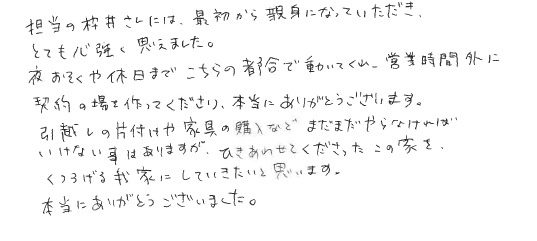 担当の枠井さんには、最初から親身になっていただき、
とても心強く思えました。
夜おそくや休日までこちらの都合で動いてくれ、営業時間外に
契約の場を作ってくださり、本当にありがとうございます。
引越しの片付けや家具の購入など まだまだやらなければ
いけない事はありますが、ひきあわせてくださったこの家を、
くつろげる我家にしていきたいと思います。
本当にありがとうございました。